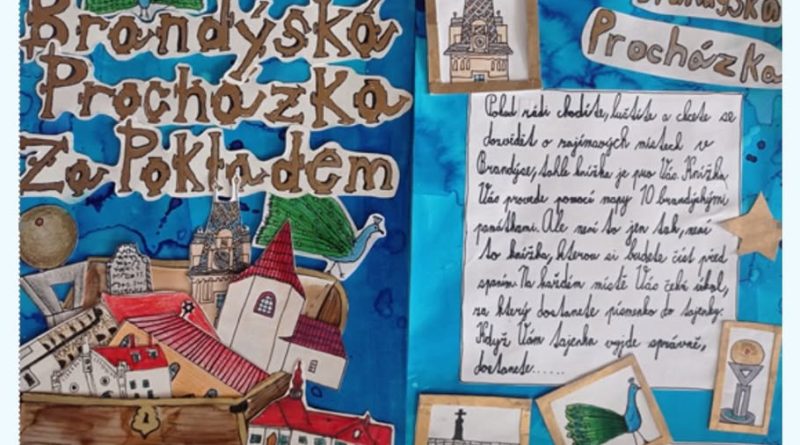 Brandýská
Procházka
Za Pokladem
Brandýská
Procházka
Pokud rádi chodíte, luštíte a chcete se
dozvědět o zajímavých místech v
Brandýse, tahle knížka je pro Vás. Knížka
Vás provede pomocí mapy 10 brandýskými
památkami. Ale není to jen tak, není
to knížka, kterou si budete číst před
spaním. Na každém místě Vás čeká úkol,
za který dostanete písmenko do tajenky.
Když Vám tajenka vyjde správně,
dostanete......